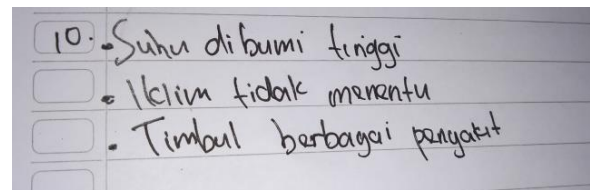 10. • Suhu di bumi tinggi
• Iklim tidak menentu
• Timbul berbagai penyakit